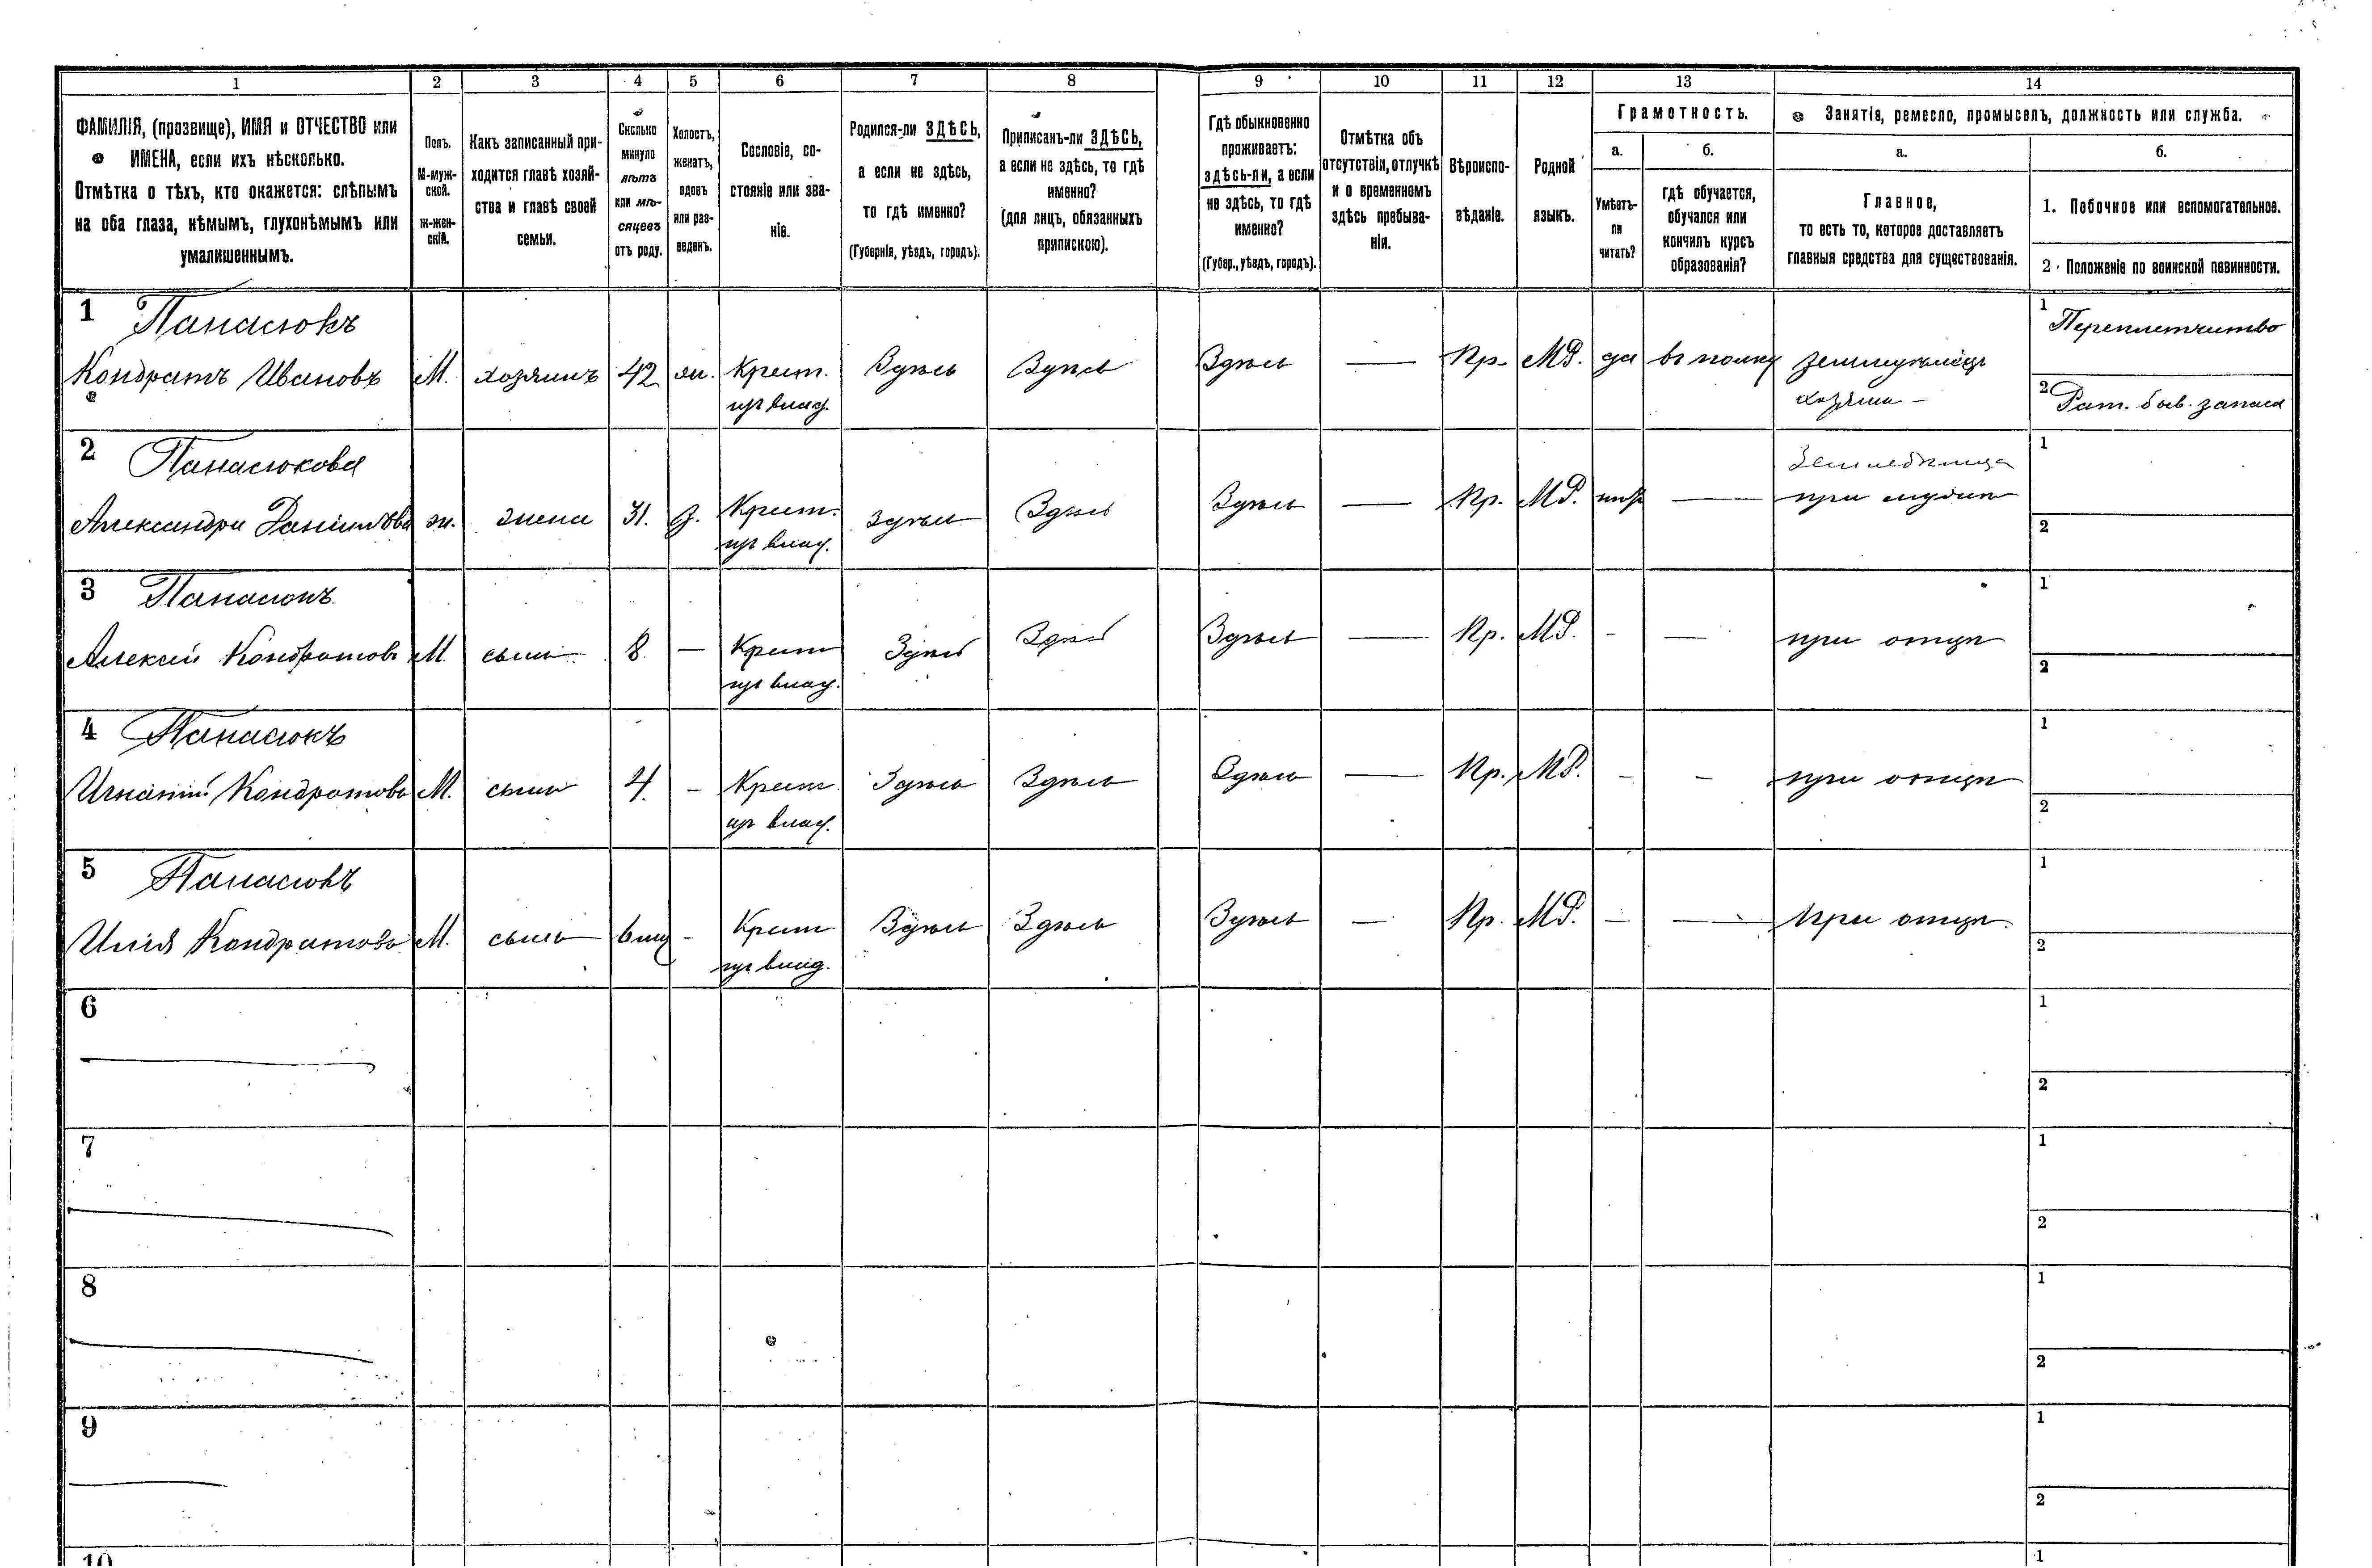 1 2 3 4 5 6 7 8 9 10 11 12 13 14
ФАМИЛІЯ, (прозвище), ИМЯ и ОТЧЕСТВО или
ИМЕНА, если ихъ нѣсколько.
Отмѣтка о тѣхъ, кто окажется: слѣпымъ
на оба глаза, нѣмымъ, глухонѣмымъ или
умалишеннымъ.
Полъ.
М-муж-
ской.
Ж-жен-
скій.
Какъ записанный при-
ходится главѣ хозяй-
ства и главѣ своей
семьи.
Сколько
минуло
лѣтъ
или мѣ-
сяцевъ
отъ роду.
Холостъ,
женатъ,
вдовъ
или раз-
веденъ.
Сословіе, со-
стояніе или зва-
ніе.
Родился-ли ЗДѢСЬ,
а если не здѣсь,
то гдѣ именно?
(Губернія, уѣздъ, городъ).
Приписанъ-ли ЗДѢСЬ,
а если не здѣсь, то гдѣ
именно?
(для лицъ, обязанныхъ
припискою).
Гдѣ обыкновенно
проживаетъ:
здѣсь-ли, а если
не здѣсь, то гдѣ
именно?
(Губер., уѣздъ, городъ).
Отмѣтка объ
отсутствіи, отлучкѣ
и о временномъ
здѣсь пребыва-
ніи.
Вѣроиспо-
вѣданіе.
Родной
языкъ.
Грамотность.
а.
Умѣетъ-
ли
читать?
б.
гдѣ обучается,
обучался или
кончилъ курсъ
образованія?
Занятія, ремесло, промыселъ, должность или служба.
а.
Главное,
то есть то, которое доставляетъ
главныя средства для существованія.
б.
1. Побочное или вспомогательное.
2. Положеніе по воинской повинности.
1 Панасюкъ 1 Переплетчитво
Кондратъ Ивановъ М. хозяинъ 42 ж. Крест. Здѣсь Здѣсь Здѣсь — Пр. МР. да въ полку земледѣлецъ
изъ влад. хозяинъ 2 Рат. быв. запаса
2 Панасюкова Земледѣлица 1
Александра Данилова ж. жена 31. З. Крест. Здѣсь Здѣсь Здѣсь — Пр. МР. нѣтъ — при мужѣ
изъ влад. 2
3 Панасюкъ 1
Алексѣй Кондратовъ М. сынъ 8 — Крест Здѣсь Здѣсь Здѣсь — Пр. МР. - — при отцѣ
изъ влад. 2
4 Панасюкъ 1
Игнатій Кондратовъ М. сынъ 4. - Крест. Здѣсь Здѣсь Здѣсь — Пр. МР. - - при отцѣ
изъ влад. 2
5 Панасюкъ 1
Илія Кондратовъ М. сынъ 6 мц - Крест Здѣсь Здѣсь Здѣсь — Пр. МР. - — При отцѣ.
изъ влад. 2
6 1
2
7 1
2
8 1
2
9 1
2
10 1